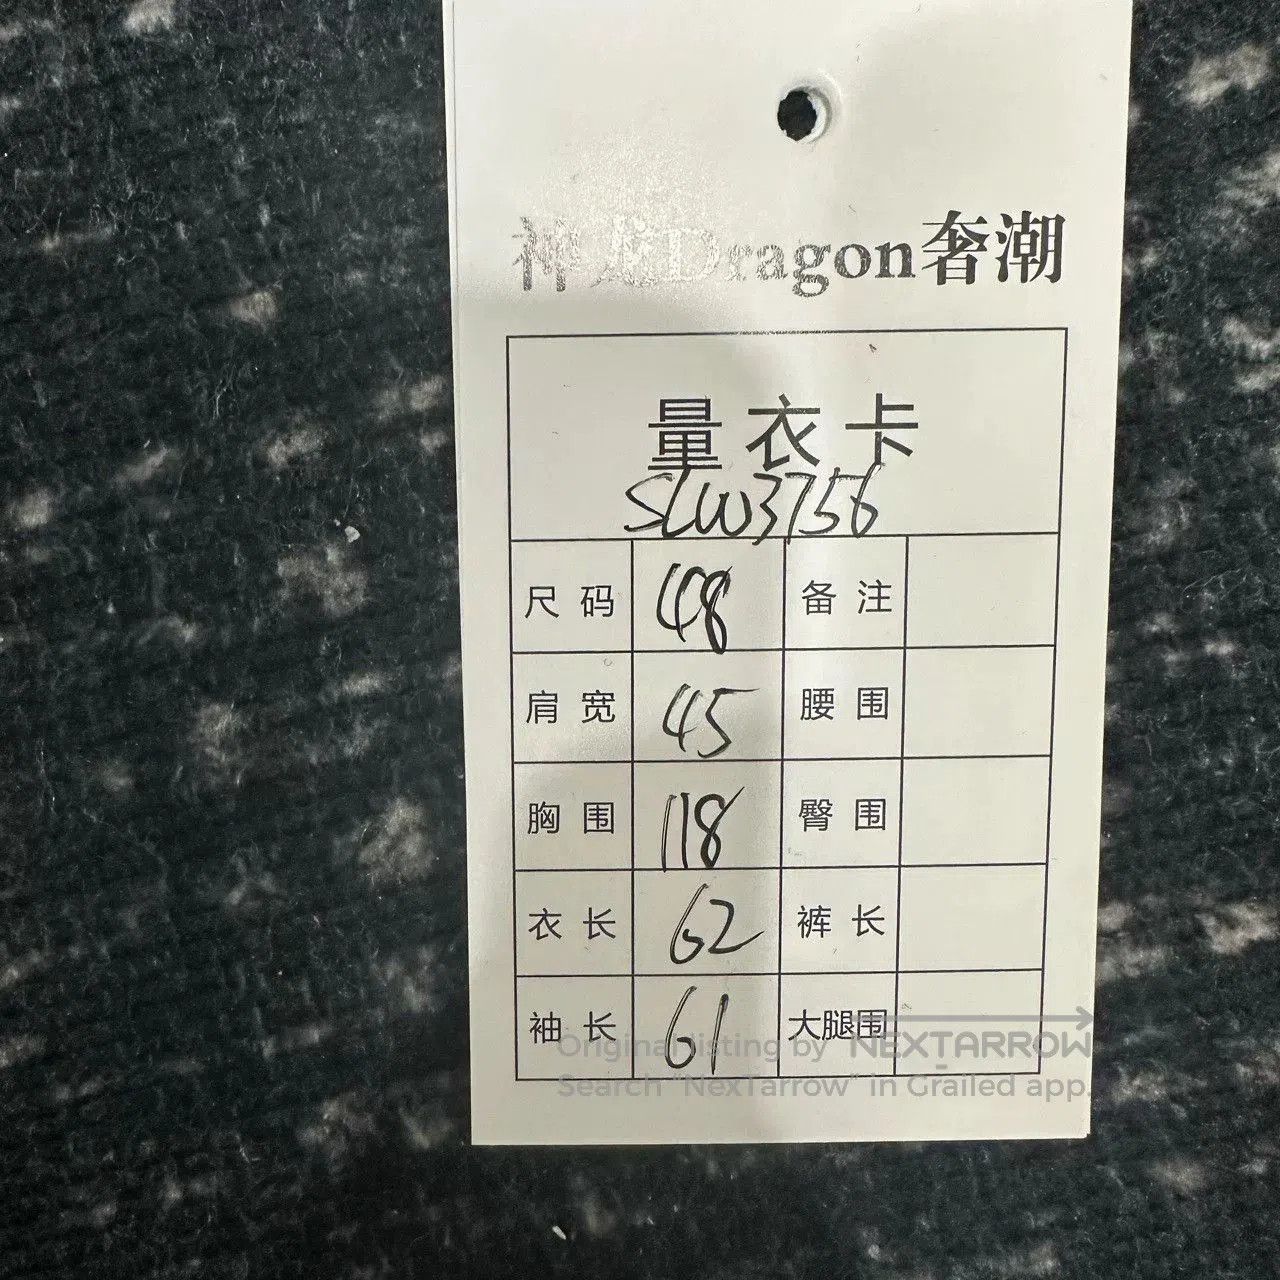 神龙Dragon奢潮
量衣卡
SLW3756
尺码 48 备注
肩宽 45 腰围
胸围 118 臀围
衣长 62 裤长
袖长 61 大腿围
Original listing by NEXTARROW
Search "NexTarrow" in Grailed app.